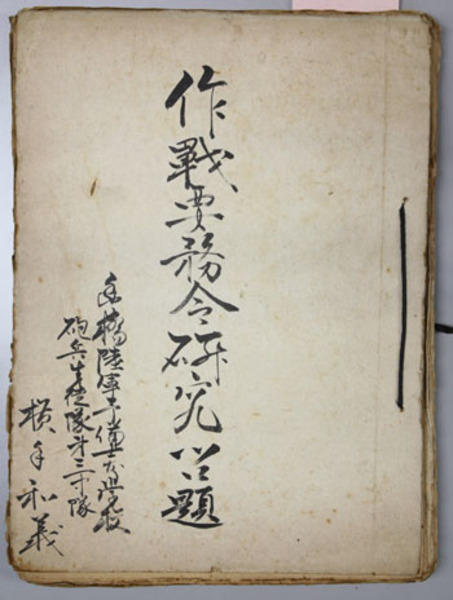 作戰要務令研究問題
豊橋陸軍予備士官学校
砲兵生徒隊第三中隊
横手和義